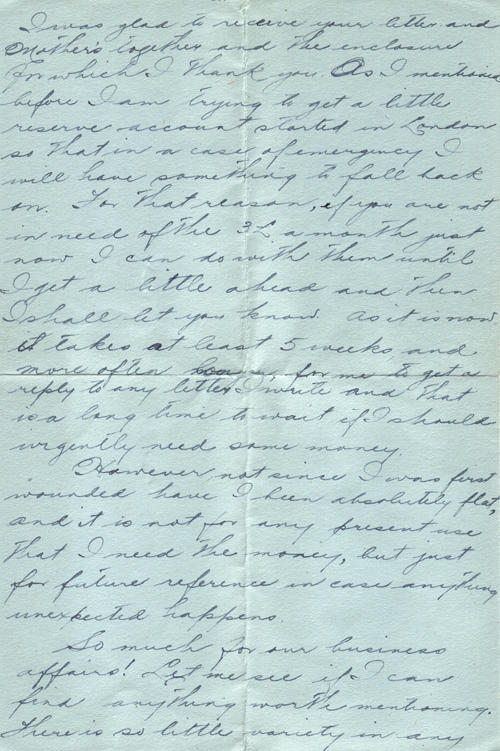 I was glad to receive your letter and
Mother's together and the enclosure
for which I thank you. As I mentioned
before I am trying to get a little
reserve account started in London
so that in a case of emergency I
will have something to fall back
on. For that reason, if you are not
in need of the 3£ a month just
now I can do with them until
I get a little ahead and then
I shall let you know. As it is now
it takes at least 5 weeks and
more often for me to get a
reply to any letter I write and that
is a long time to wait if I should
urgently need some money.
However not since I was first
wounded have I been absolutely flat,
and it is not for any present use
that I need the money, but just
for future reference in case anything
unexpected happens.
So much for our business
affairs! Let me see if I can
find anything worth mentioning.
There is so little variety in any